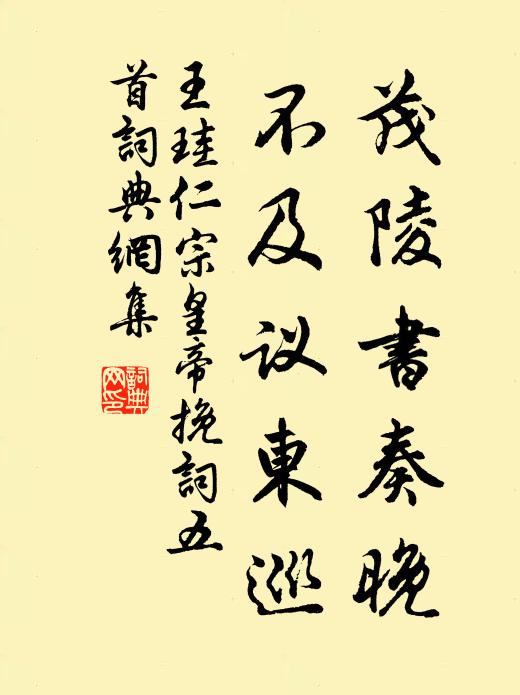 茂陵書奏晚
不及议東巡
王珪仁宗皇帝挽詞五
首詞典網集
詞典
网印